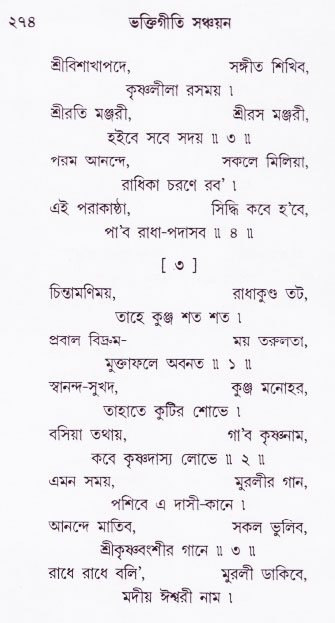 ২৭৪ ভক্তিগীতি সঞ্চয়ন
শ্রীবিশাখাপদে, সঙ্গীত শিখিব,
কৃষ্ণলীলা রসময় ।
শ্রীরতি মঞ্জরী, শ্রীরস মঞ্জরী,
হইবে সবে সদয় ॥ ৩ ॥
পরম আনন্দে, সকলে মিলিয়া,
রাধিকা চরণে রব’ ।
এই পরাকাষ্ঠা, সিদ্ধি কবে হ’বে,
পা’ব রাধা-পদাসব ॥ ৪ ॥
[ ৩ ]
চিন্তামণিময়, রাধাকুণ্ড তট,
তাহে কুঞ্জ শত শত ।
প্রবাল বিদ্রুম- ময় তরুলতা,
মুক্তাফলে অবনত ॥ ১ ॥
স্বানন্দ-সুখদ, কুঞ্জ মনোহর,
তাহাতে কুটির শোভে ।
বসিয়া তথায়, গা’ব কৃষ্ণনাম,
কবে কৃষ্ণদাস্য লোভে ॥ ২ ॥
এমন সময়, মুরলীর গান,
পশিবে এ দাসী-কানে ।
আনন্দে মাতিব, সকল ভুলিব,
শ্রীকৃষ্ণবংশীর গানে ॥ ৩ ॥
রাধে রাধে বলি’, মুরলী ডাকিবে,
মদীয় ঈশ্বরী নাম ।